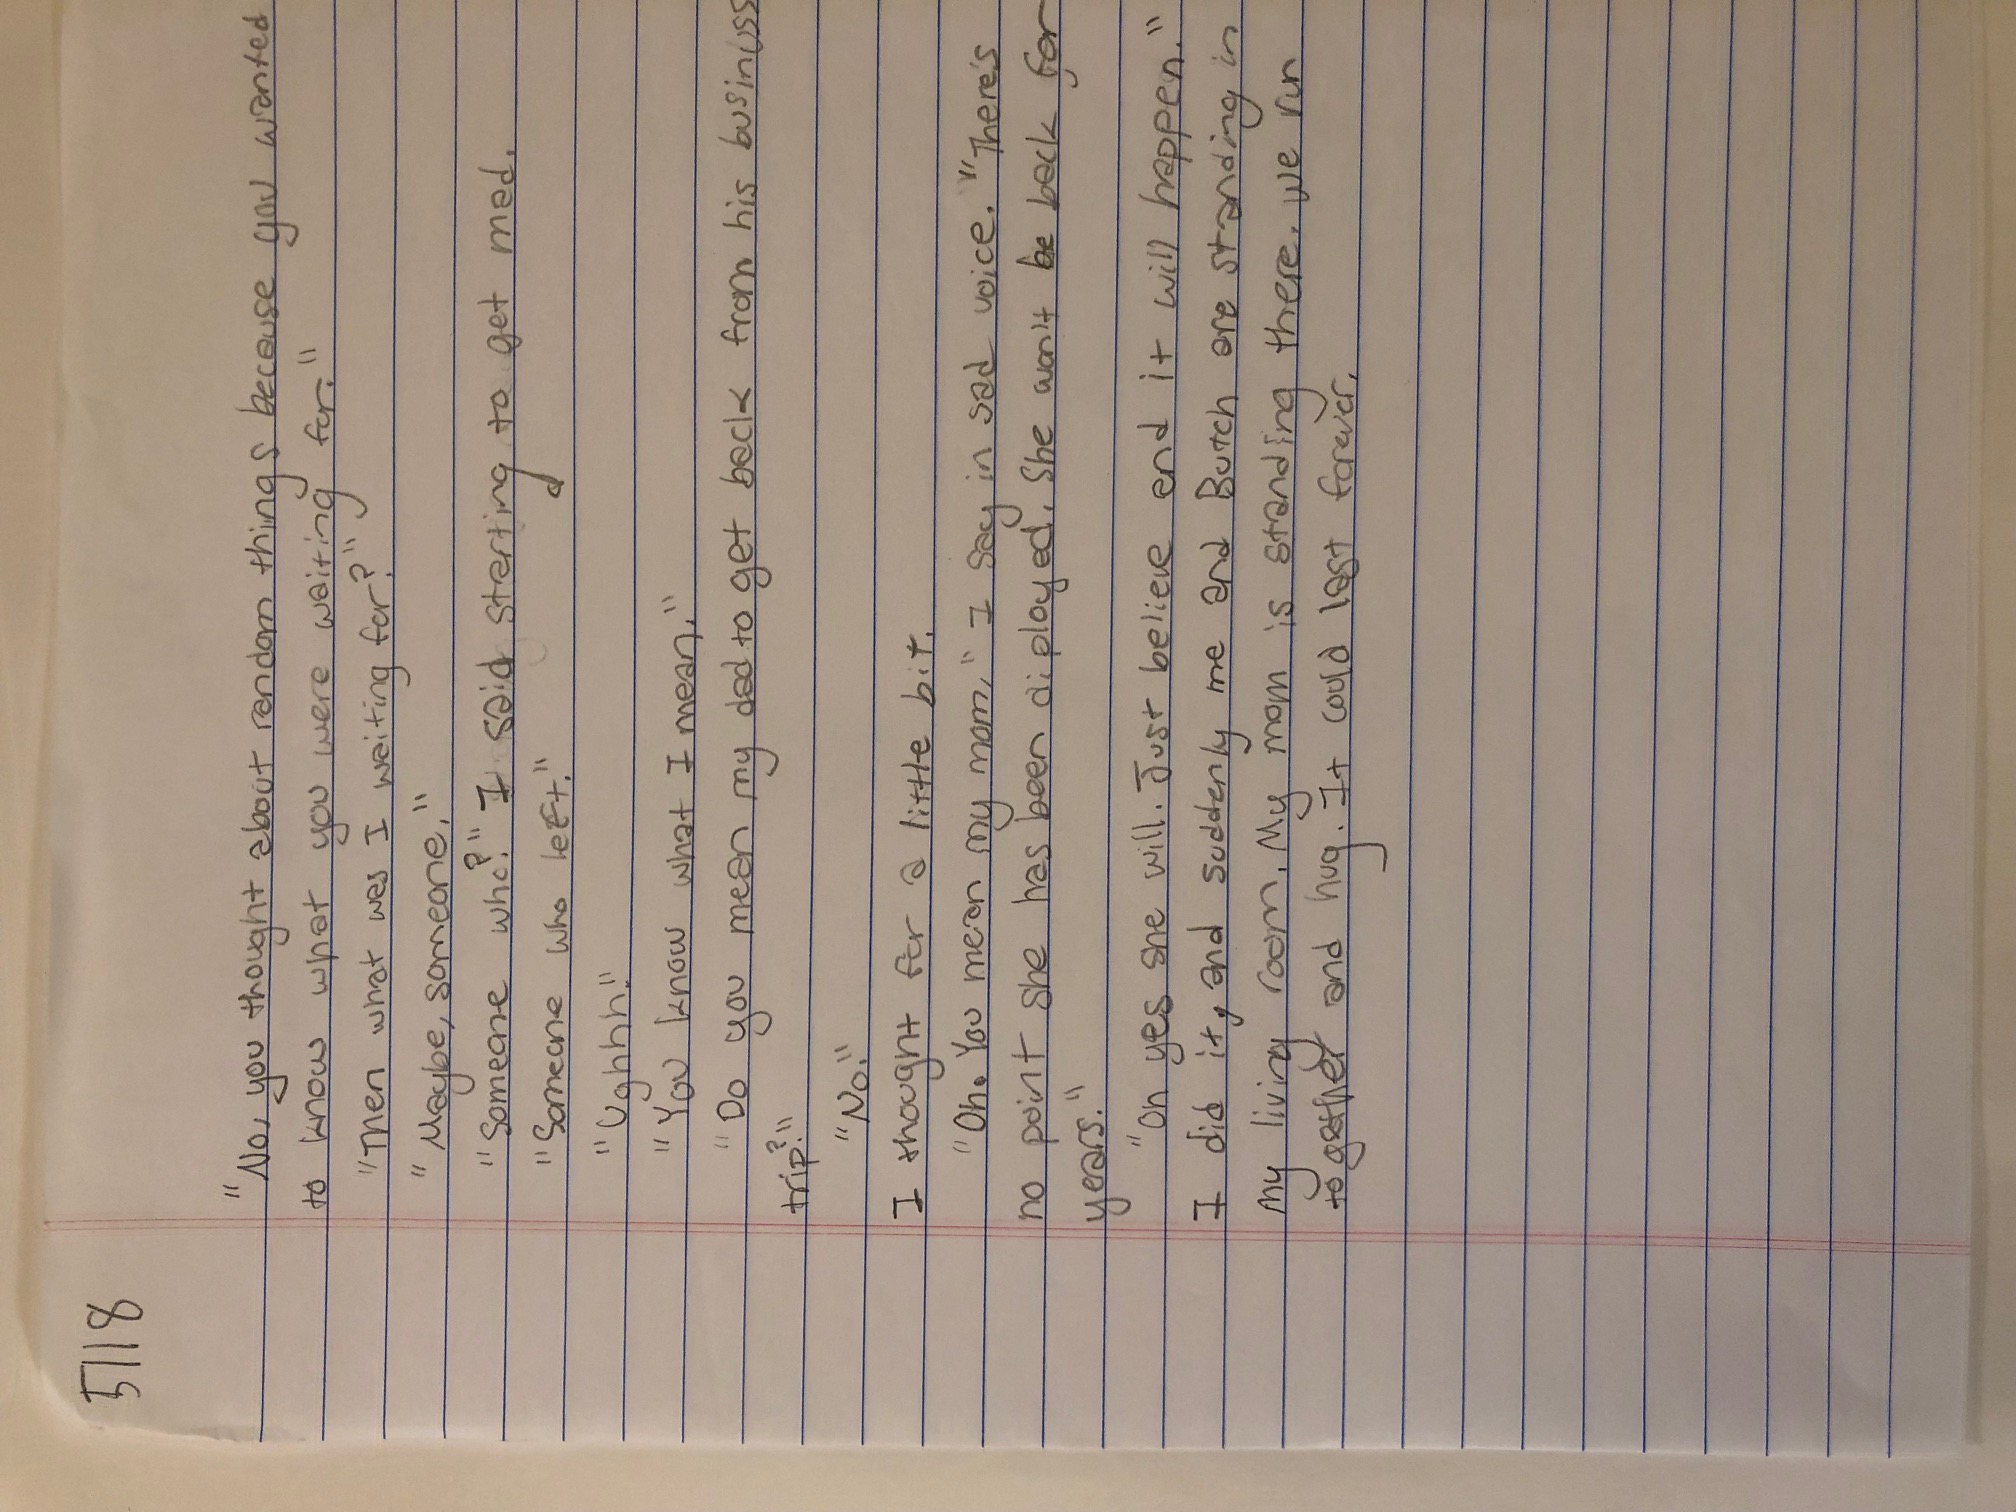 5/18
"No, you thought about random things because you wanted
to know what you were waiting for."
"Then what was I waiting for?"
"Maybe, someone."
"Someone who?" I said starting to get mad.
"Someone who left."
"Ughhh!"
"You know what I mean."
"Do you mean my dad to get back from his businuss
trip?"
"No."
I thought for a little bit.
"Oh. You mean my mom," I say in sad voice. "There's
no point she has been diployed. She won't be back for
years."
"Oh yes she will. Just believe and it will happen."
I did it, and suddenly me and Butch are standing in
my living room. My mom is standing there. We run
together and hug. It could last forever.